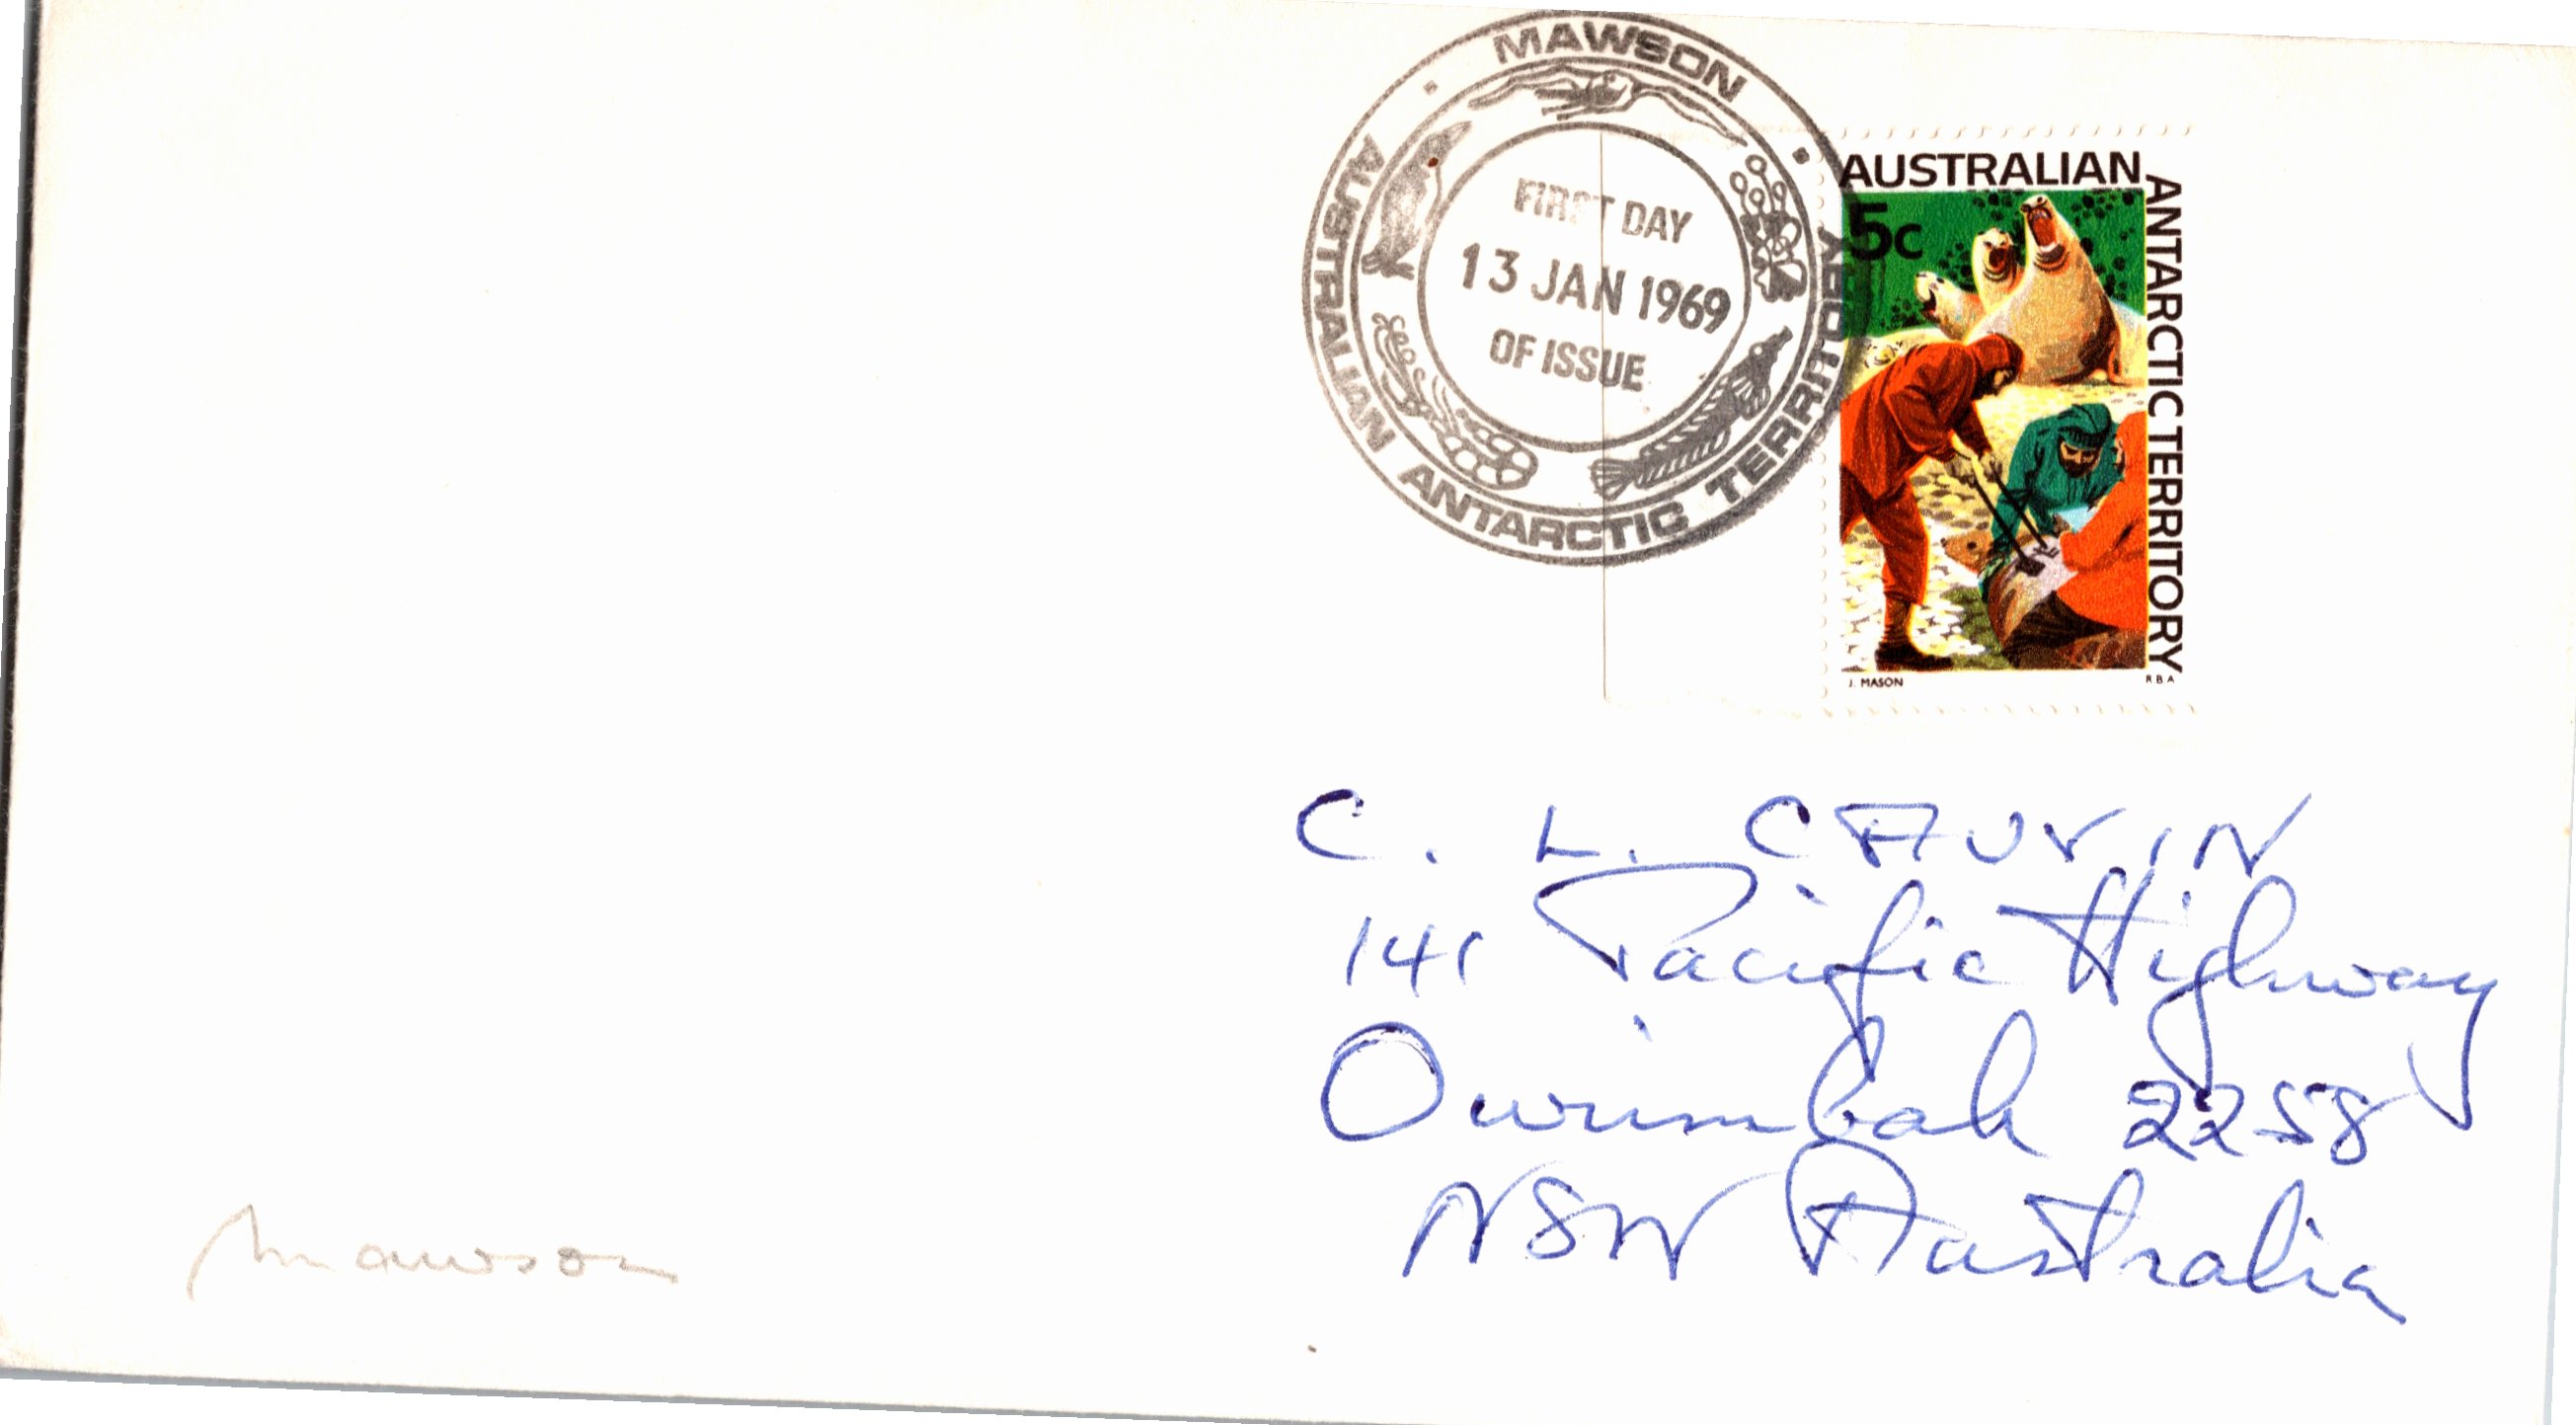 MAWSON
AUSTRALIAN ANTARCTIC TERRITORY
FIRST DAY
13 JAN 1969
OF ISSUE
AUSTRALIAN
ANTARCTIC TERRITORY
5c
J. MASON
RBA
C. L. CAUVIN
141 Pacific Highway
Ourimbah 2258
NSW Australia
Mawson